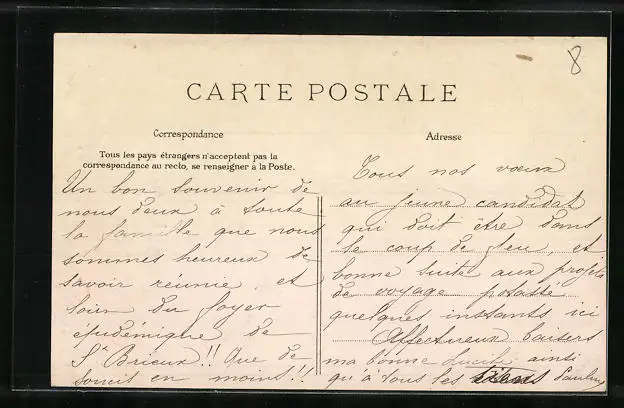 8
CARTE POSTALE
Correspondance
Tous les pays étrangers n'acceptent pas la
correspondance au recto, se renseigner à la Poste.
Un bon souvenir de
nous deux à toute
la famille que nous
sommes heureux de
savoir réunie, et
loin du foyer
épidémique de
St Brieux!! Que de
souci en moins!!
Adresse
Tous nos vœux
au jeune candidat
qui doit être dans
le coup de feu, et
bonne suite aux projets
de voyage
quelques instants ici
Affectueux baisers
ma bonne ainsi
qu'à tous les